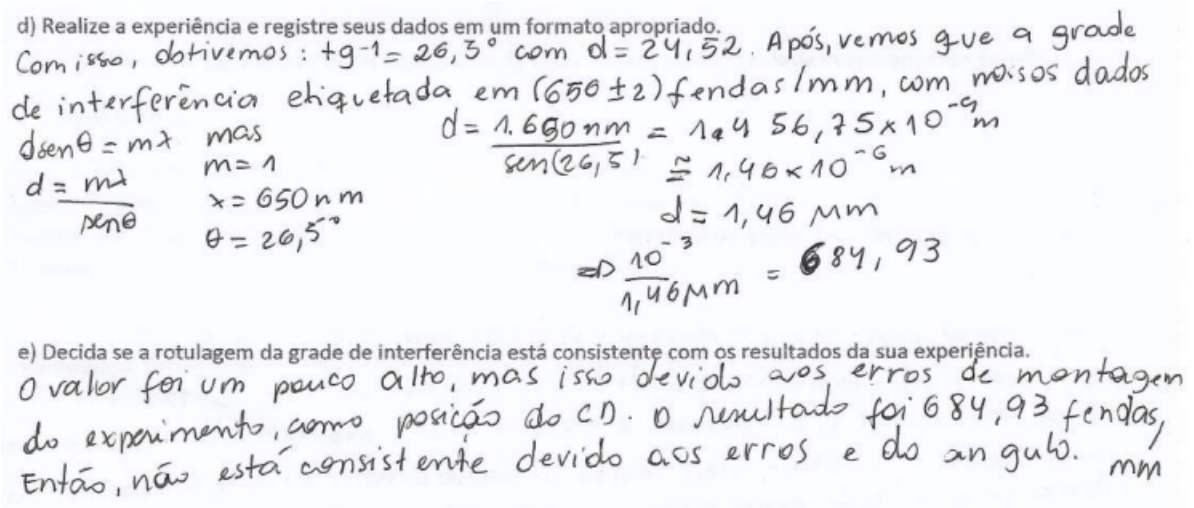 d) Realize a experiência e registre seus dados em um formato apropriado.
Com isso, obtivemos: tg-1 = 26,5° com d = 24,52. Após, vemos que a grade
de interferência etiquetada em (650 ± 2) fendas/mm, com nossos dados
dsenθ = mλ mas
d = mλ/senθ
m = 1
λ = 650 nm
θ = 26,5°
d = 1.650 nm/sen(26,5) = 1.456,75 × 10^-9 m
≅ 1,46 × 10^-6 m
d = 1,46 μm
=> 10^-3/1,46 μm = 684,93
e) Decida se a rotulagem da grade de interferência está consistente com os resultados da sua experiência.
O valor foi um pouco alto, mas isso devido aos erros de montagem
do experimento, como posição do CD. O resultado foi 684,93 fendas/mm
Então, não está consistente devido aos erros e do angulo.